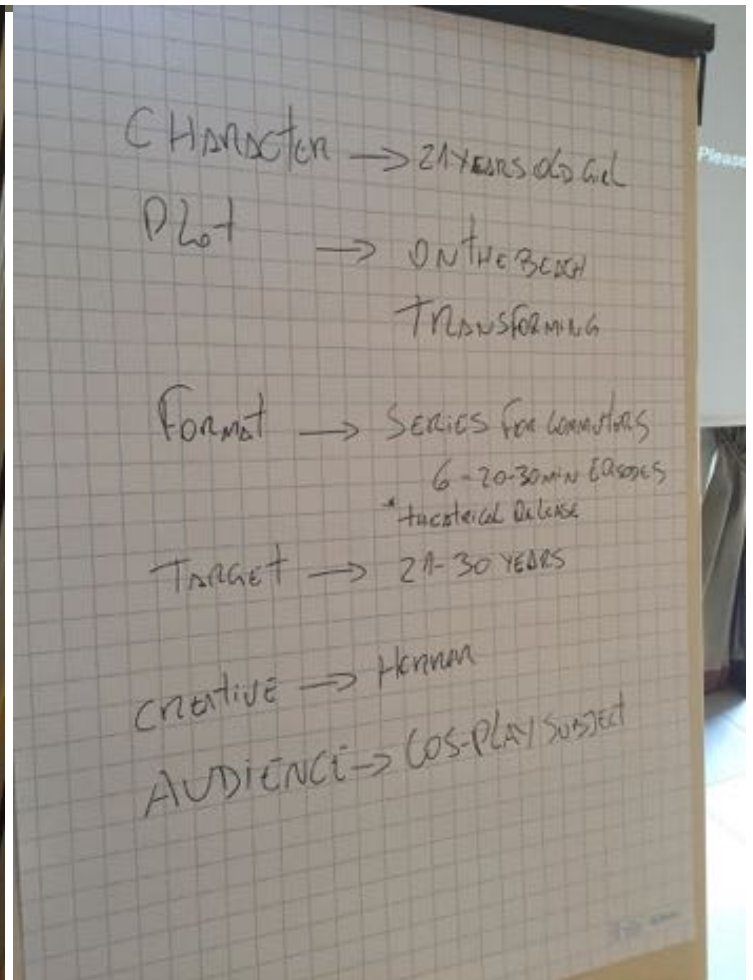 CHARACTER → 21 YEARS OLD GIRL
PLOT → ON THE BEACH
TRANSFORMING
FORMAT → SERIES FOR COMMUTORS
6 - 20-30 MIN EPISODES
* theatrical Release
TARGET → 21-30 YEARS
CREATIVE → HORROR
AUDIENCE → COS-PLAY SUBJECT
Please